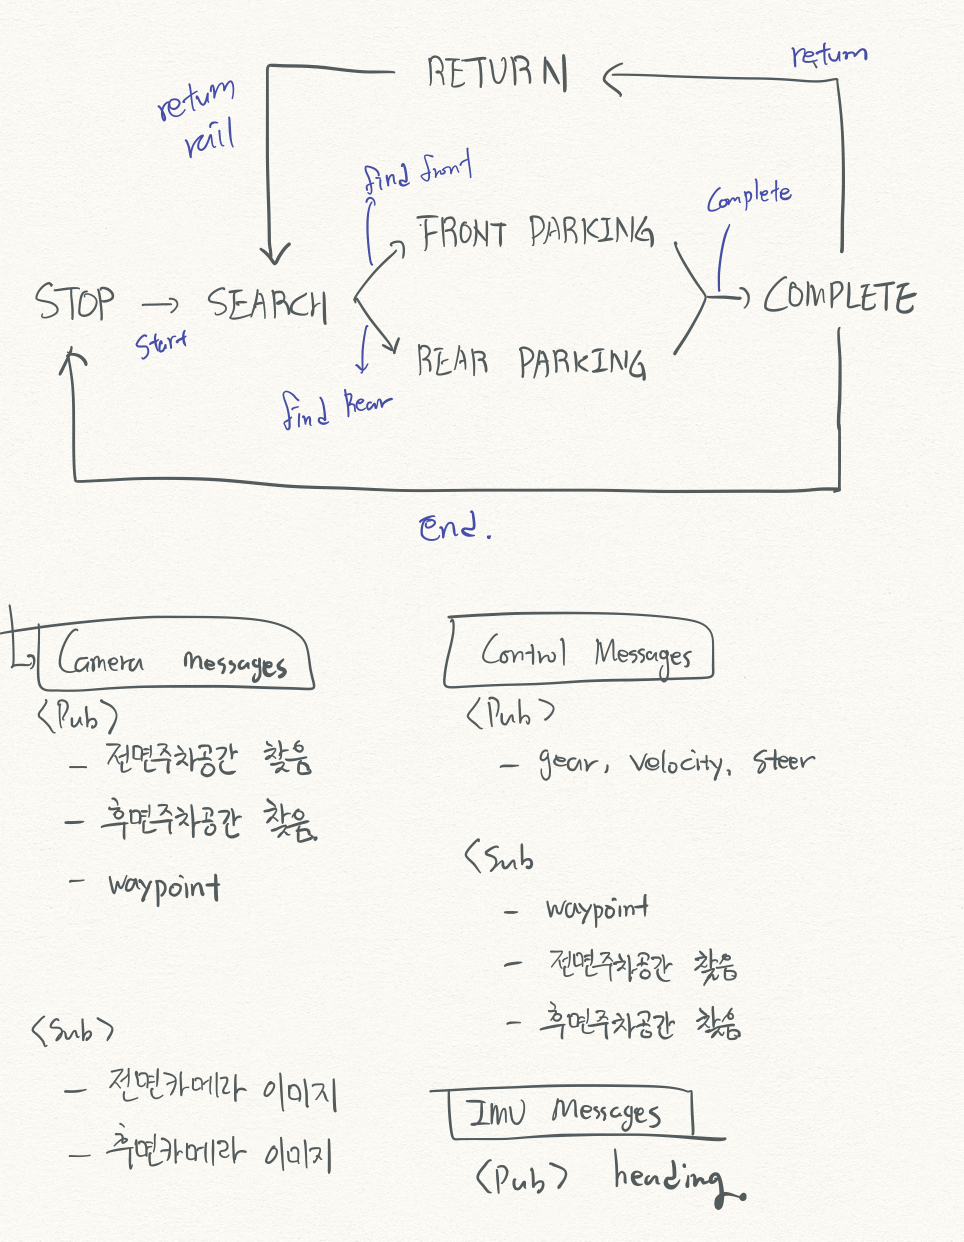 RETURN
return
return
rail
find front
FRONT PARKING
Complete
STOP
SEARCH
COMPLETE
Start
REAR PARKING
find Rear
End.
Camera Messages
<Pub>
- 전면주차공간 찾음
- 후면주차공간 찾음.
- waypoint
<Sub>
- 전면카메라 이미지
- 후면카메라 이미지
Control Messages
<Pub>
- gear, velocity, steer
<Sub
- waypoint
- 전면주차공간 찾음
- 후면주차공간 찾음
IMU Messages
<Pub> heading.